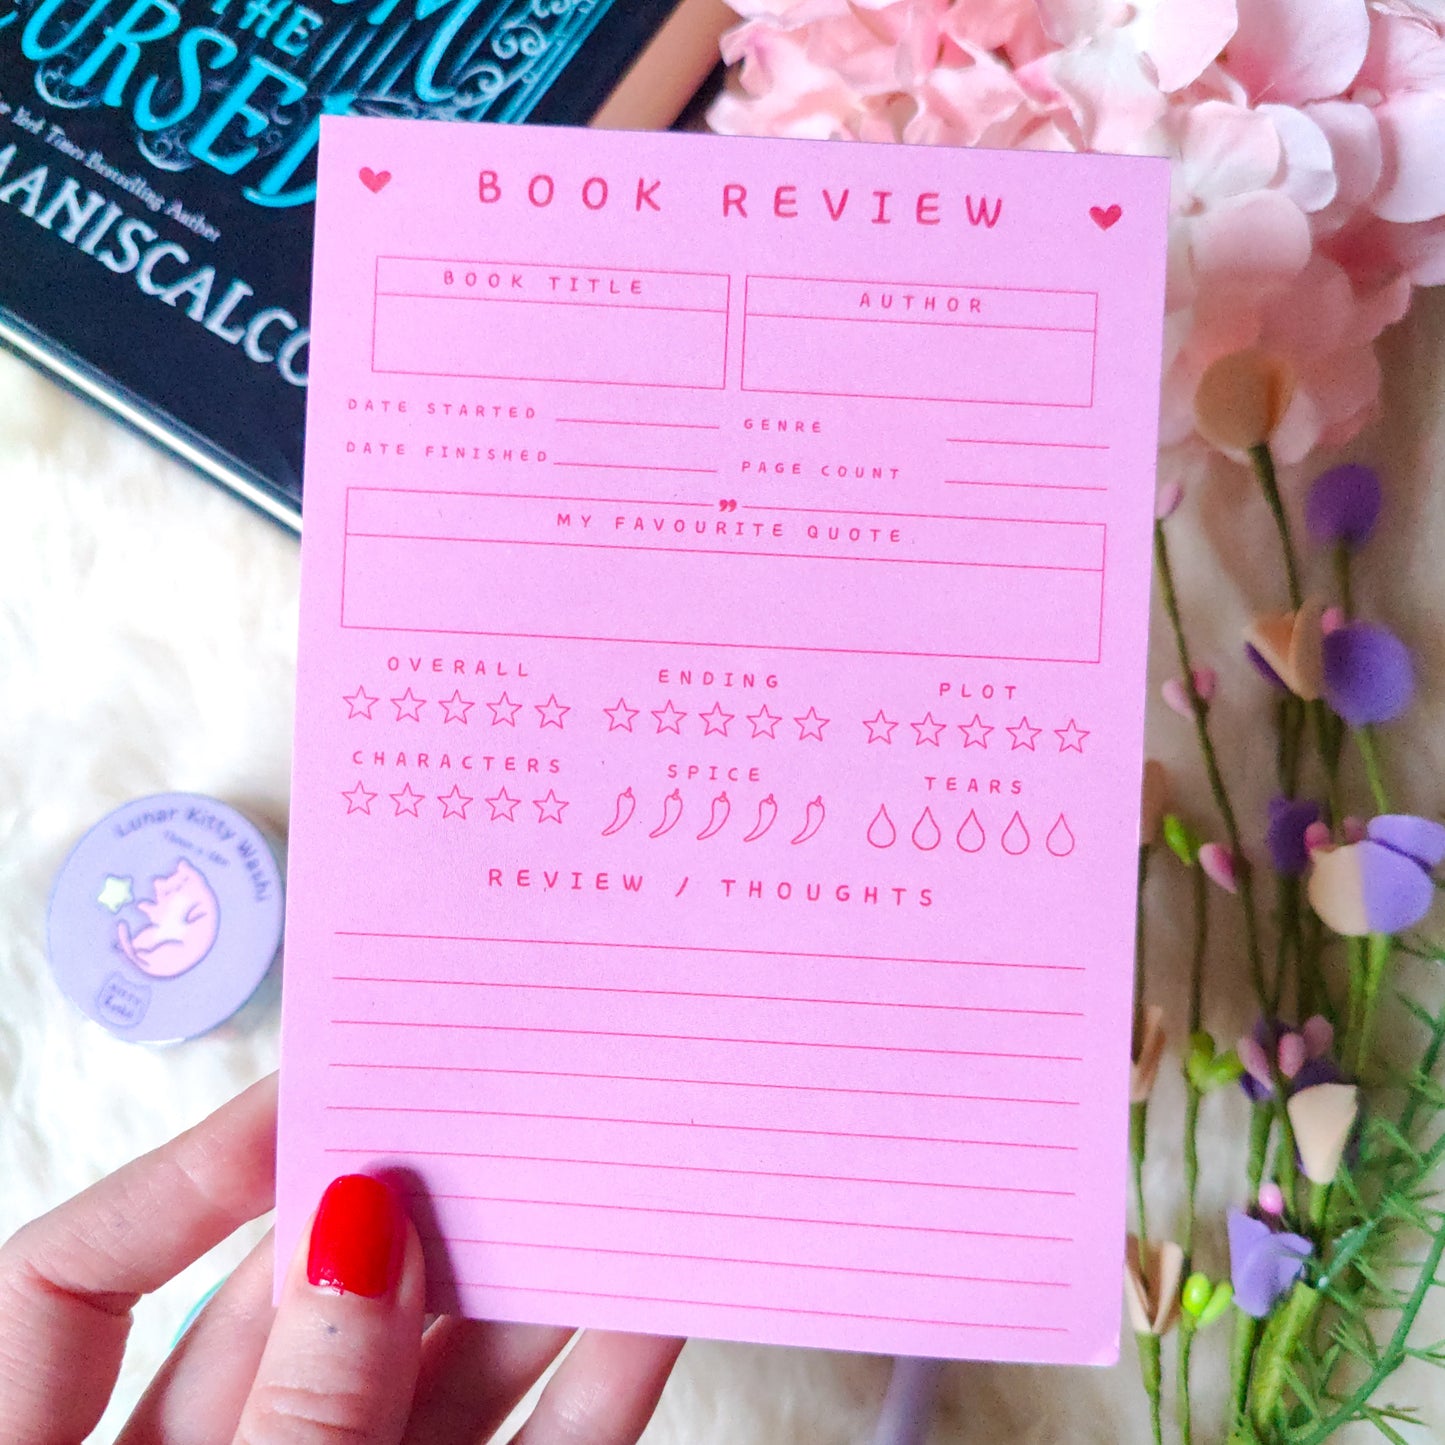 THE
CURSED
New York Times Bestselling Author
MANISCALCO
BOOK REVIEW
BOOK TITLE
AUTHOR
DATE STARTED
GENRE
DATE FINISHED
PAGE COUNT
MY FAVOURITE QUOTE
OVERALL
ENDING
PLOT
CHARACTERS
SPICE
TEARS
REVIEW / THOUGHTS
Lunar Kitty Washi
KITTY